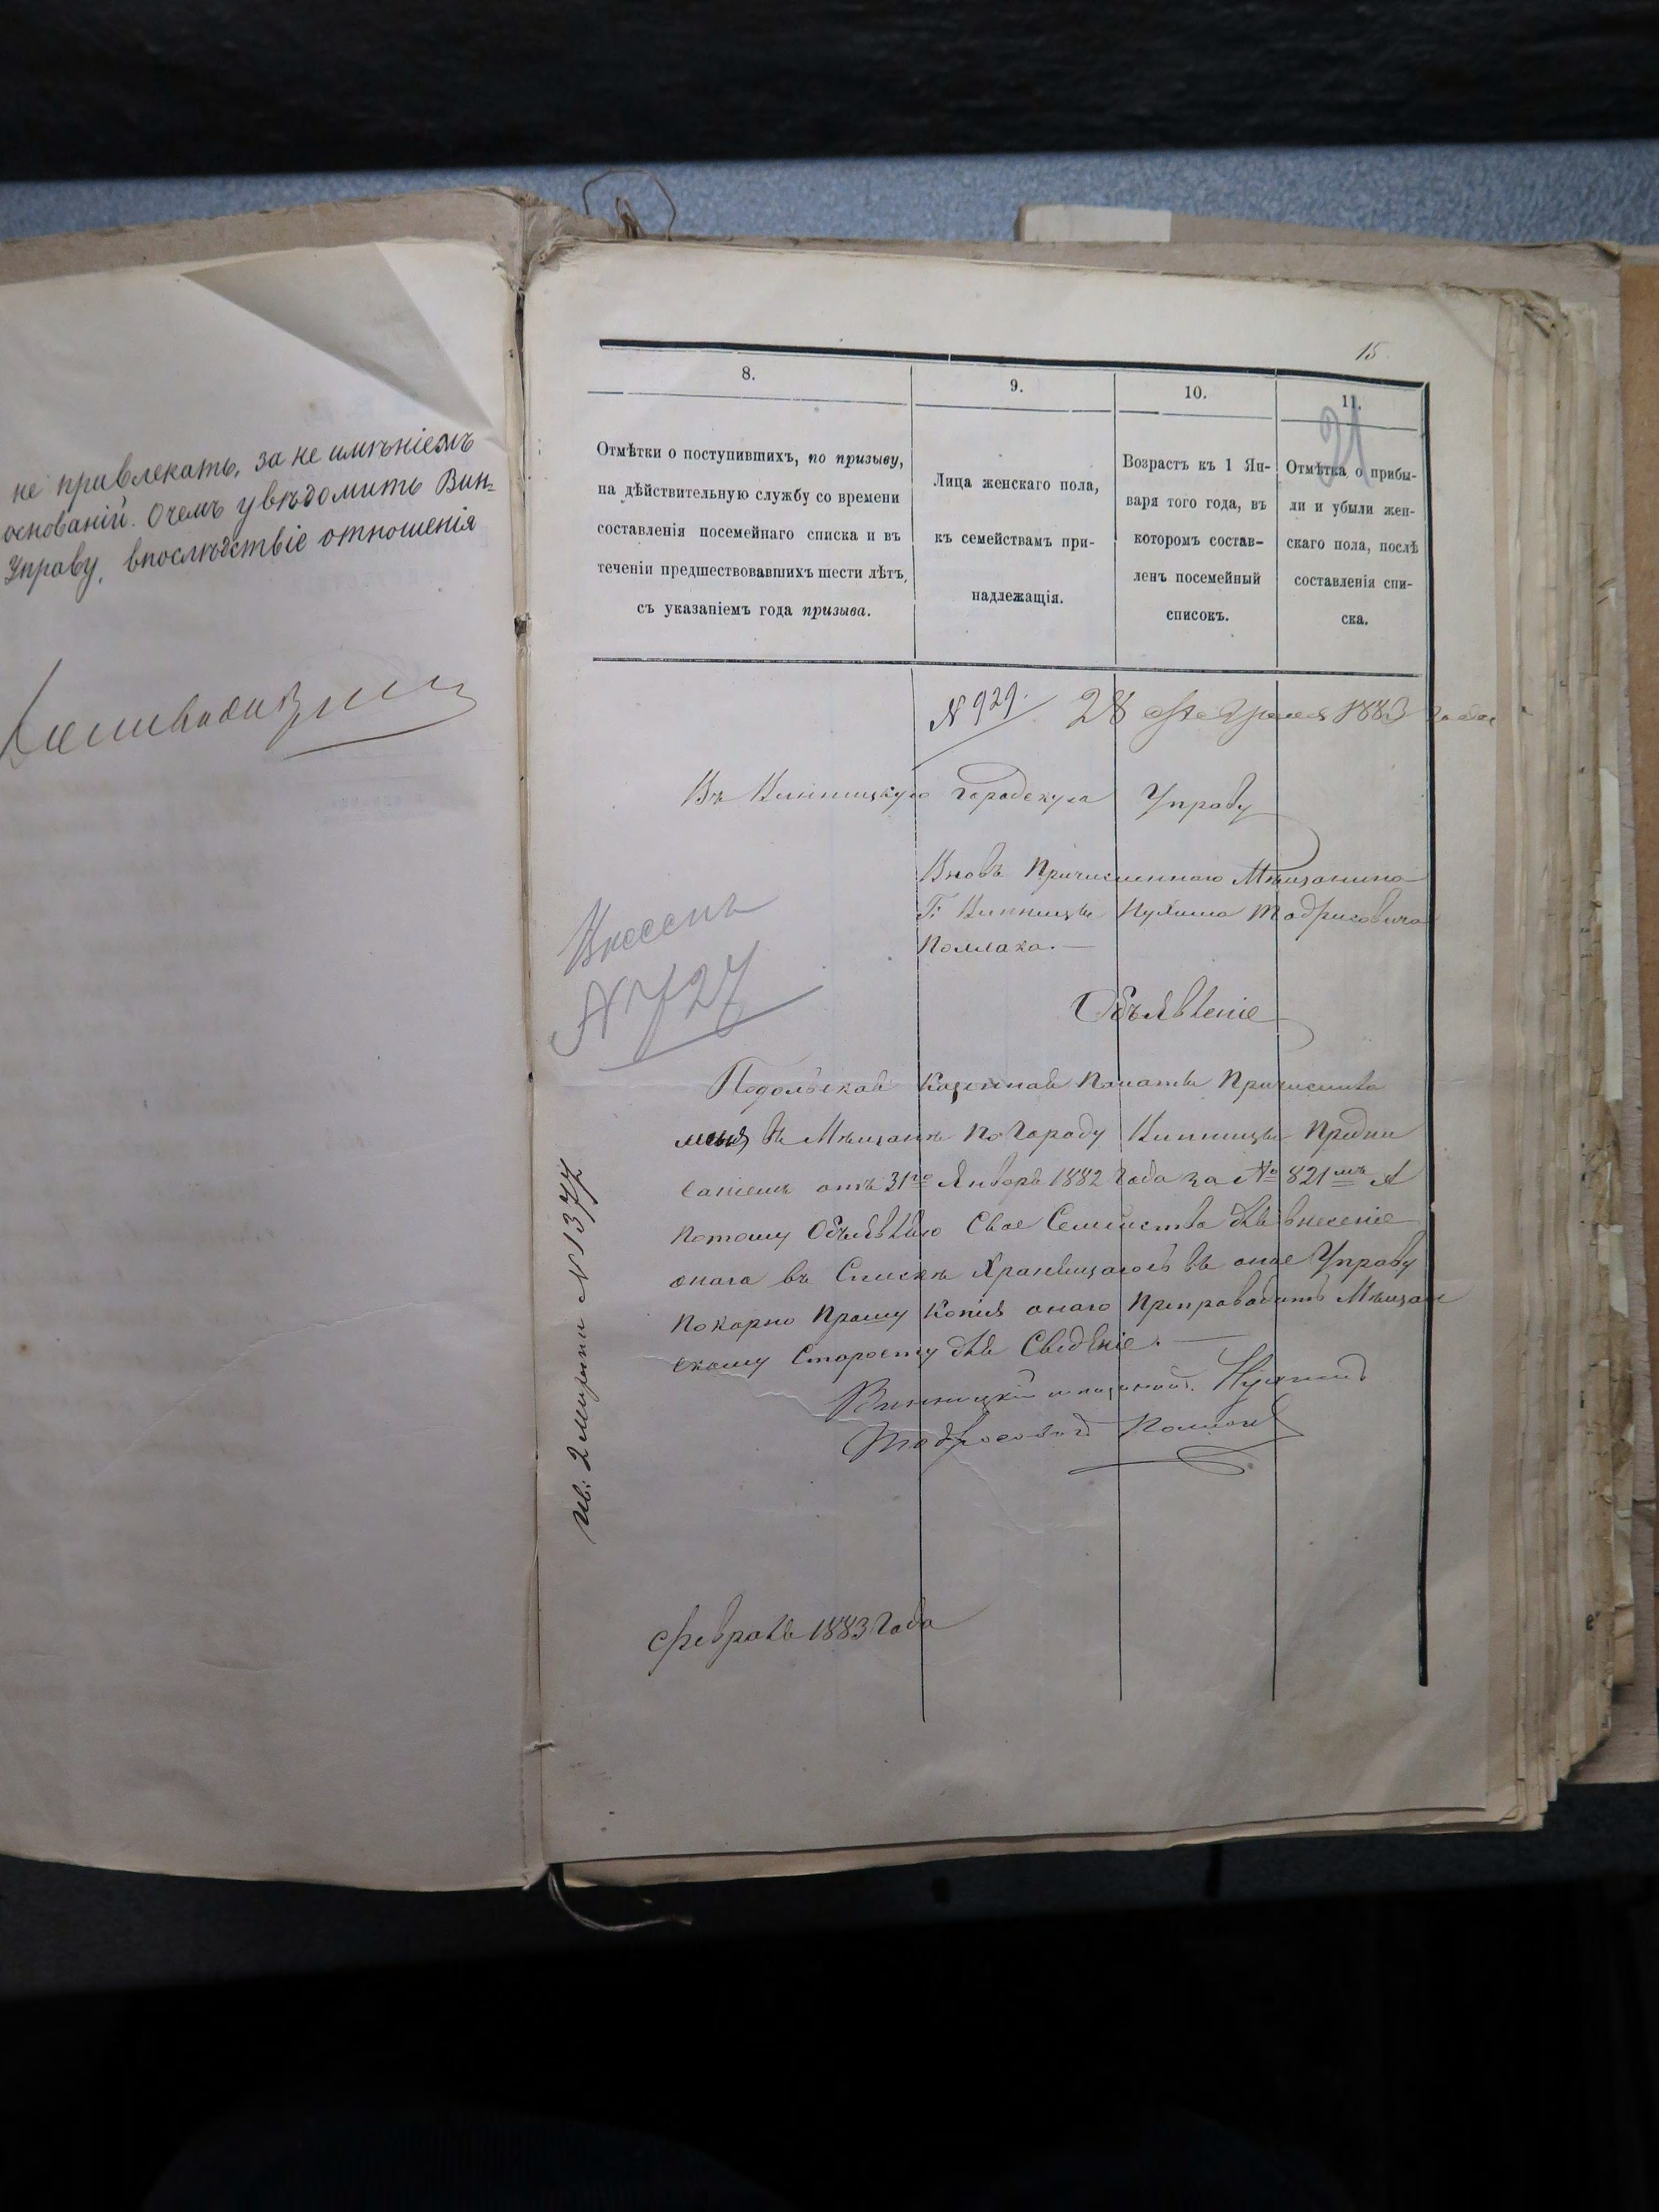 не привлекать, за не имѣніемъ
основаній. О чемъ увѣдомить Вин=
Управу, впослѣдствіе отношенія
15
8.
9.
10.
11.
21
Отмѣтки о поступившихъ, по призыву,
на дѣйствительную службу со времени
составленія посемейнаго списка и въ
теченіи предшествовавшихъ шести лѣтъ,
съ указаніемъ года призыва.
Лица женскаго пола,
къ семействамъ при-
надлежащія.
Возрастъ къ 1 Ян-
варя того года, въ
которомъ состав-
ленъ посемейный
списокъ.
Отмѣтка о прибы-
ли и убыли жен-
скаго пола, послѣ
составленія спи-
ска.
№ 929. 28 Февраля 1883 года
Въ Винницкую Городскую Управу
Вновь Причисленнаго Мѣщанина
Г. Винницы Нухима Тодрисовича
Поллака.—
Объявленіе
Внесенъ
№ 727
Подольская Казенная Полата Причислила
меня въ Мѣщане По Городу Винницы Предпи
саніемъ отъ 31го Января 1882 Года за № 821мъ А
Потому Объявляю Свое Семейство для внесеніе
онаго въ Списки Хранящагось въ оное Управу
Покорно Прошу Копія онаго Препроводить Мѣщан
скому Старосту для Сведѣніе.—
Винницкій мещанинъ Нухимъ
Тодросовичъ Полакъ
Ив: 2 Мирони № 1377
Февраля 1883 Года